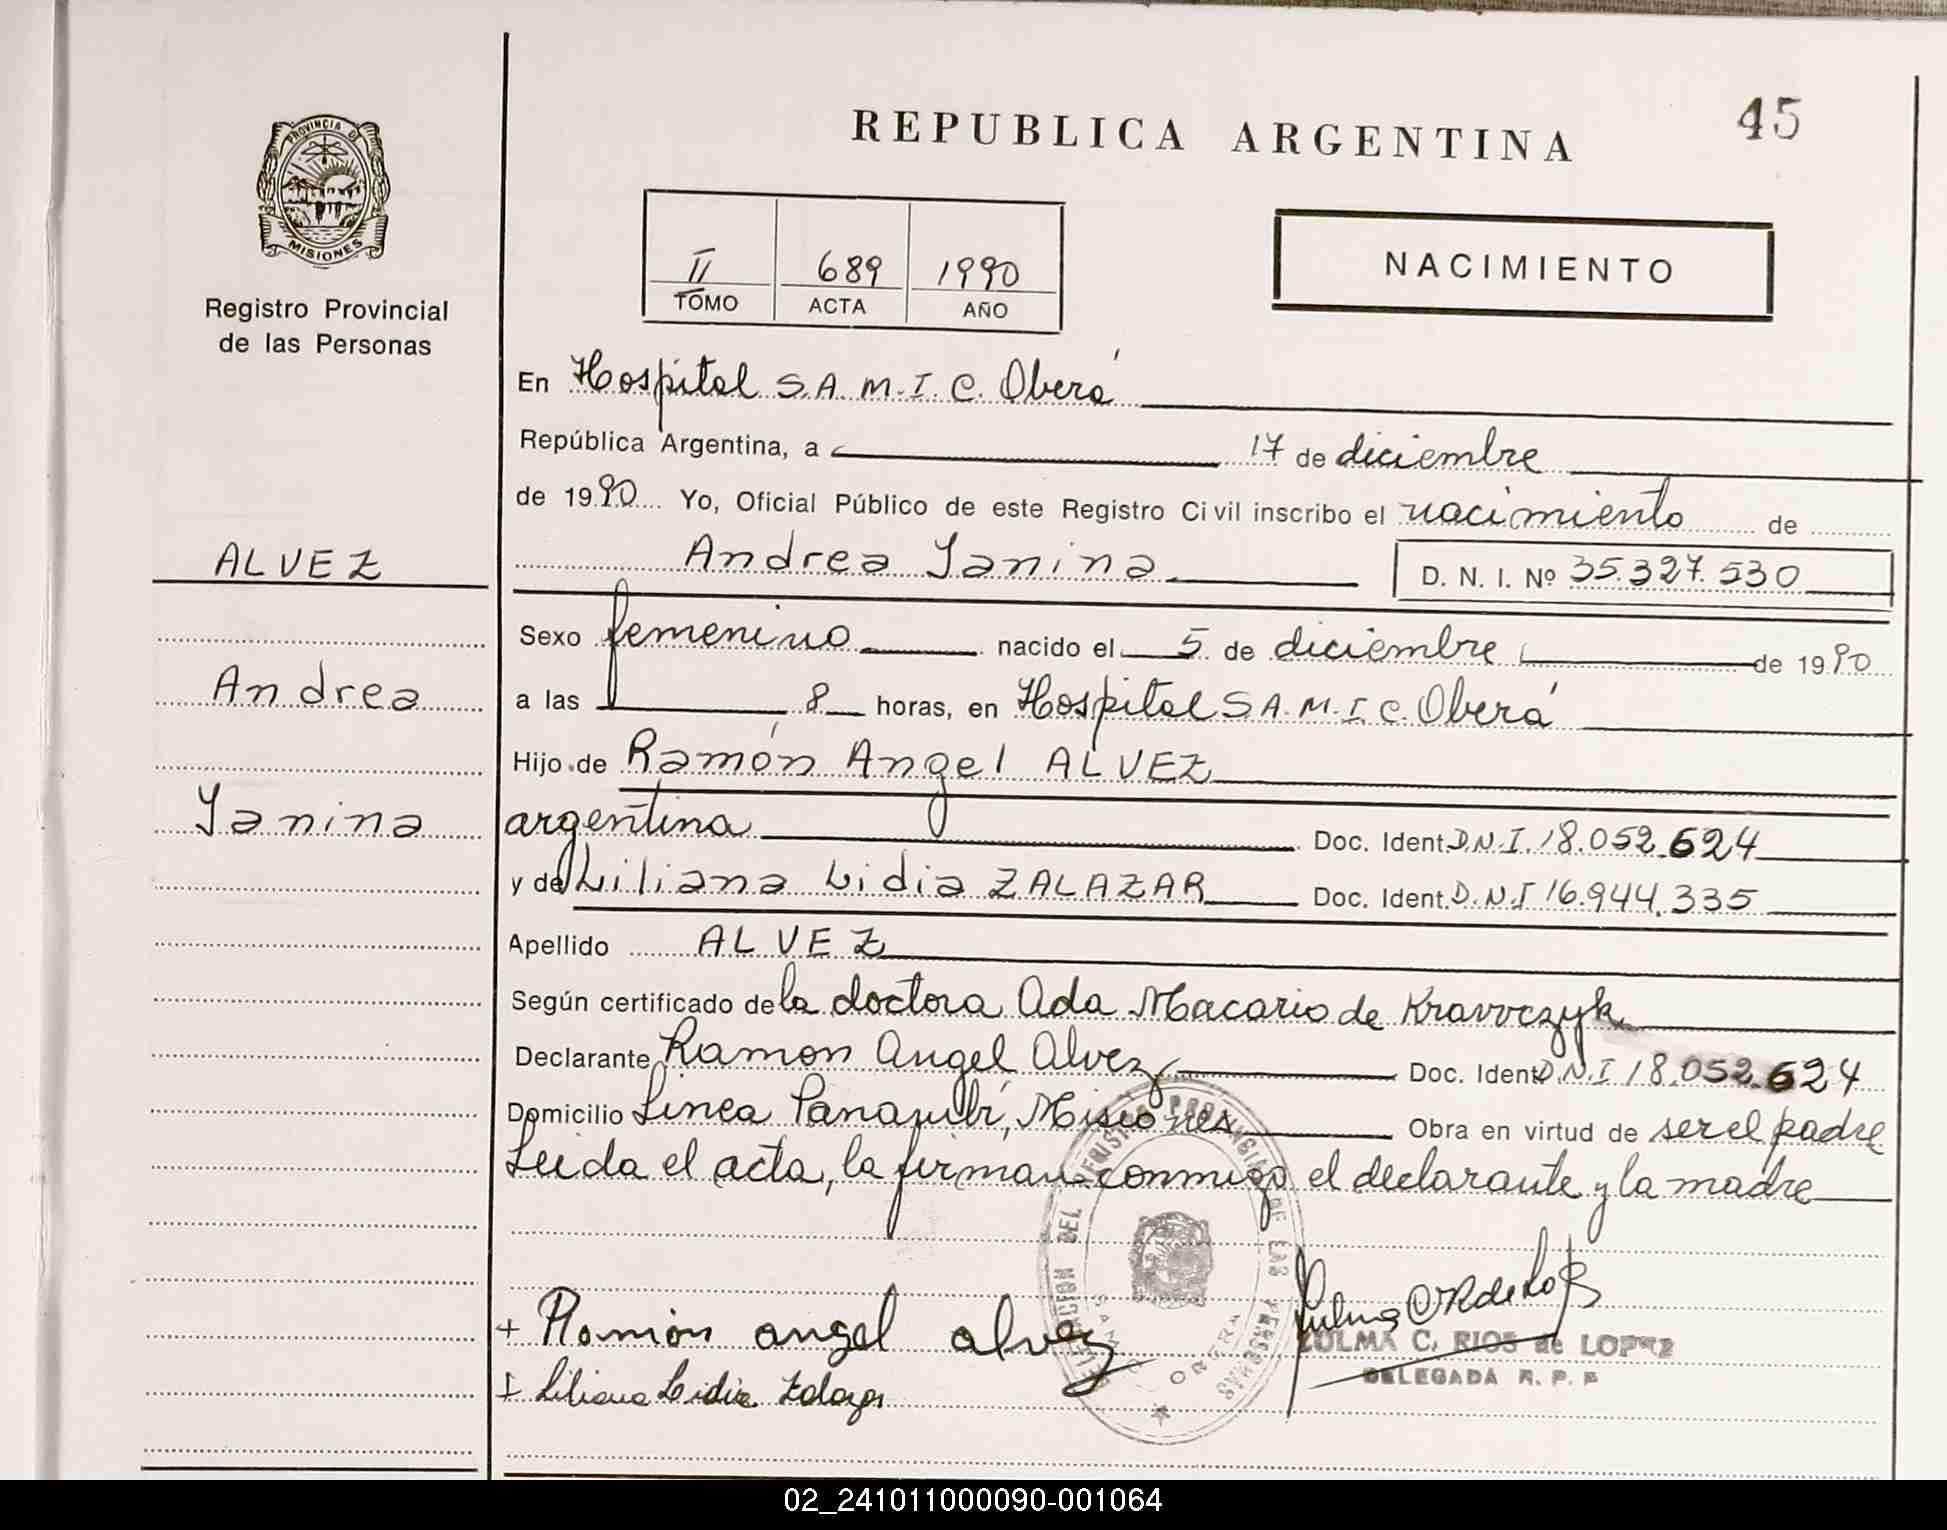 45
REPUBLICA ARGENTINA
PROVINCIA DE
MISIONES
Registro Provincial
de las Personas
II 689 1990
TOMO ACTA AÑO
NACIMIENTO
En Hospital S.A.M.I.C. Oberá
República Argentina, a 17 de diciembre
de 1990 Yo, Oficial Público de este Registro Civil inscribo el nacimiento de
ALVEZ
Andrea Yanina D. N. I. Nº 35.327.530
Sexo femenino nacido el 5 de diciembre de 1990
Andrea
a las 8 horas, en Hospital S A.M.I C. Oberá
Hijo de Ramón Angel ALVEZ
Yanina
argentina Doc. Ident. D.N.I. 18.052.624
y de Liliana Lidia ZALAZAR Doc. Ident. D.N.I 16.944.335
Apellido ALVEZ
Según certificado de la doctora Ada Macario de Kravvczyk
Declarante Ramon Angel Alvez Doc. Ident. D.N.I 18.052.624
Domicilio Linea Panambí, Misiones Obra en virtud de ser el padre
Leida el acta, la firman conmigo el declarante y la madre
DELEGACION DEL REGISTRO PROVINCIAL DE LAS PERSONAS
+ Ramón angel alvez
ZULMA C. RIOS de LOPEZ
DELEGADA R. P. P
+ Liliana Lidia Zalazar
02_241011000090-001064